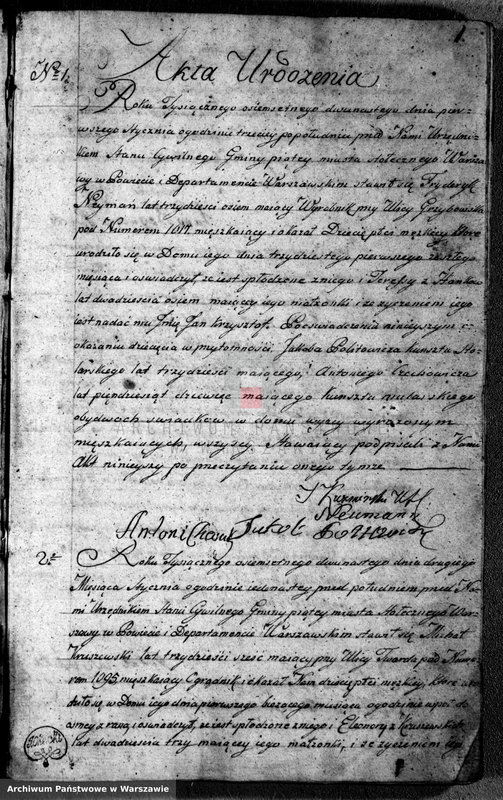 1.
Akta Urodzenia
Nro 1.
Roku Tysiącznego osiemsetnego dwunastego dnia pier-
wszego Stycznia o godzinie trzeciey po południu przed Nami Urzędni-
kiem Stanu Cywilnego Gminy piątey miasta stołecznego Warsza
wy w Powiecie i Departamencie Warszawskim stawił się Fryderyk
Neyman lat trzydzieści osiem maiący Wyrobnik przy Ulicy Grzybowskiey
pod Numerem 1017 mięszkaiący i okazał Dziecię płci męzkiey które
urodziło się w Domu iego dnia trzydziestego pierwszego zeszłego
miesiąca i oświadczył, że iest spłodzone z niego i Teressy z
lat dwadzieścia osiem maiącey iego małżonki i że życzeniem iego
iest nadać mu Imię Jan Krzysztof. Po oświadczeniu ninieyszym i
okazaniu dziecięcia w przytomności Jakuba Politowicza kunsztu Sto-
larskiego lat trzydzieści maiącego, Antoniego Czechowicza
lat piędziesiąt dziewięć maiącego kunsztu mularskiego
obydwóch świadków w domu wyżey wyrażonym
mięszkaiących, wszyscy Stawaiący podpisali z Nami
Akt ninieyszy po przeczytaniu onego tymże
Neumann
Antoni Jakob
2.
Roku Tysiącznego osiemsetnego dwunastego dnia drugiego
Miesiąca Stycznia o godzinie iedenastey przed południem przed Na-
mi Urzędnikiem Stanu Cywilnego Gminy piątey miasta stołecznego War-
szawy w Powiecie i Departamencie Warszawskim stawił się Michał
Kruszewski lat trzydzieści sześć maiący przy Ulicy Twarda pod Nume
rem 1095 mięszkaiący Ogrodnik i okazał Nam dziecię płci męzkiey, które uro
dziło się w Domu iego dnia pierwszego bieżącego miesiąca o godzinie
osmey z rana i oświadczył, że iest spłodzone z niego i Eleonory z Kruszewskich
lat dwadzieścia trzy maiącey iego małżonki, i że życzeniem iego
Archiwum Państwowe w Warszawie